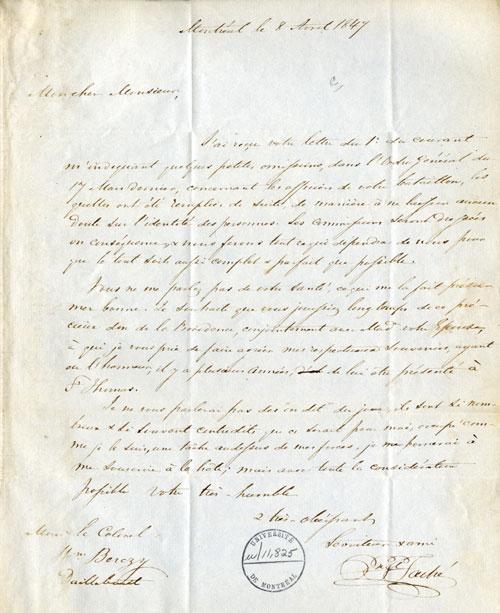 Montréal le 8 Avril 1847
Mon cher Monsieur,
J'ai reçu votre lettre du 1er du courant
m'indiquant quelques petites omissions, dans l'Ordre Général du
17 Mars dernier, concernant les officiers de votre bataillon, les
quelles ont été remplies de suite de manière à ne laisser aucun
doute sur l'identité des personnes. Les commissions seront
en conséquence & nous ferons tout ce qui dependra de nous pour
que le tout soit aussi complet & parfait que possible.
Vous ne me parlez pas de votre santé, ce qui me la fait présu-
mer bonne. Je souhaite que vous jouissiez long temps de ce pré-
cieux don de la Providence, conjointement avec Made votre Epouse,
à qui je vous prie de faire agréer mes respectueux souvenirs, ayant
eu l'honneur, il y a plusieurs années, de lui être présenté à
St Thomas.
Je ne vous parlerai pas des on dit du jour, ils sont si nom-
breux & si souvent contredits, que ce serait pour moi, occupé com-
me je le suis, une tâche audessus de mes forces, je me bornerai à
me souscrire à la hâte; mais avec toute la considération
possible votre très-humble
& très-obéissant
Serviteur & ami
Taché
Monsr le Colonel
Wm Berczy
Daillebout
UNIVERSITÉ
11,825
DE MONTRÉAL